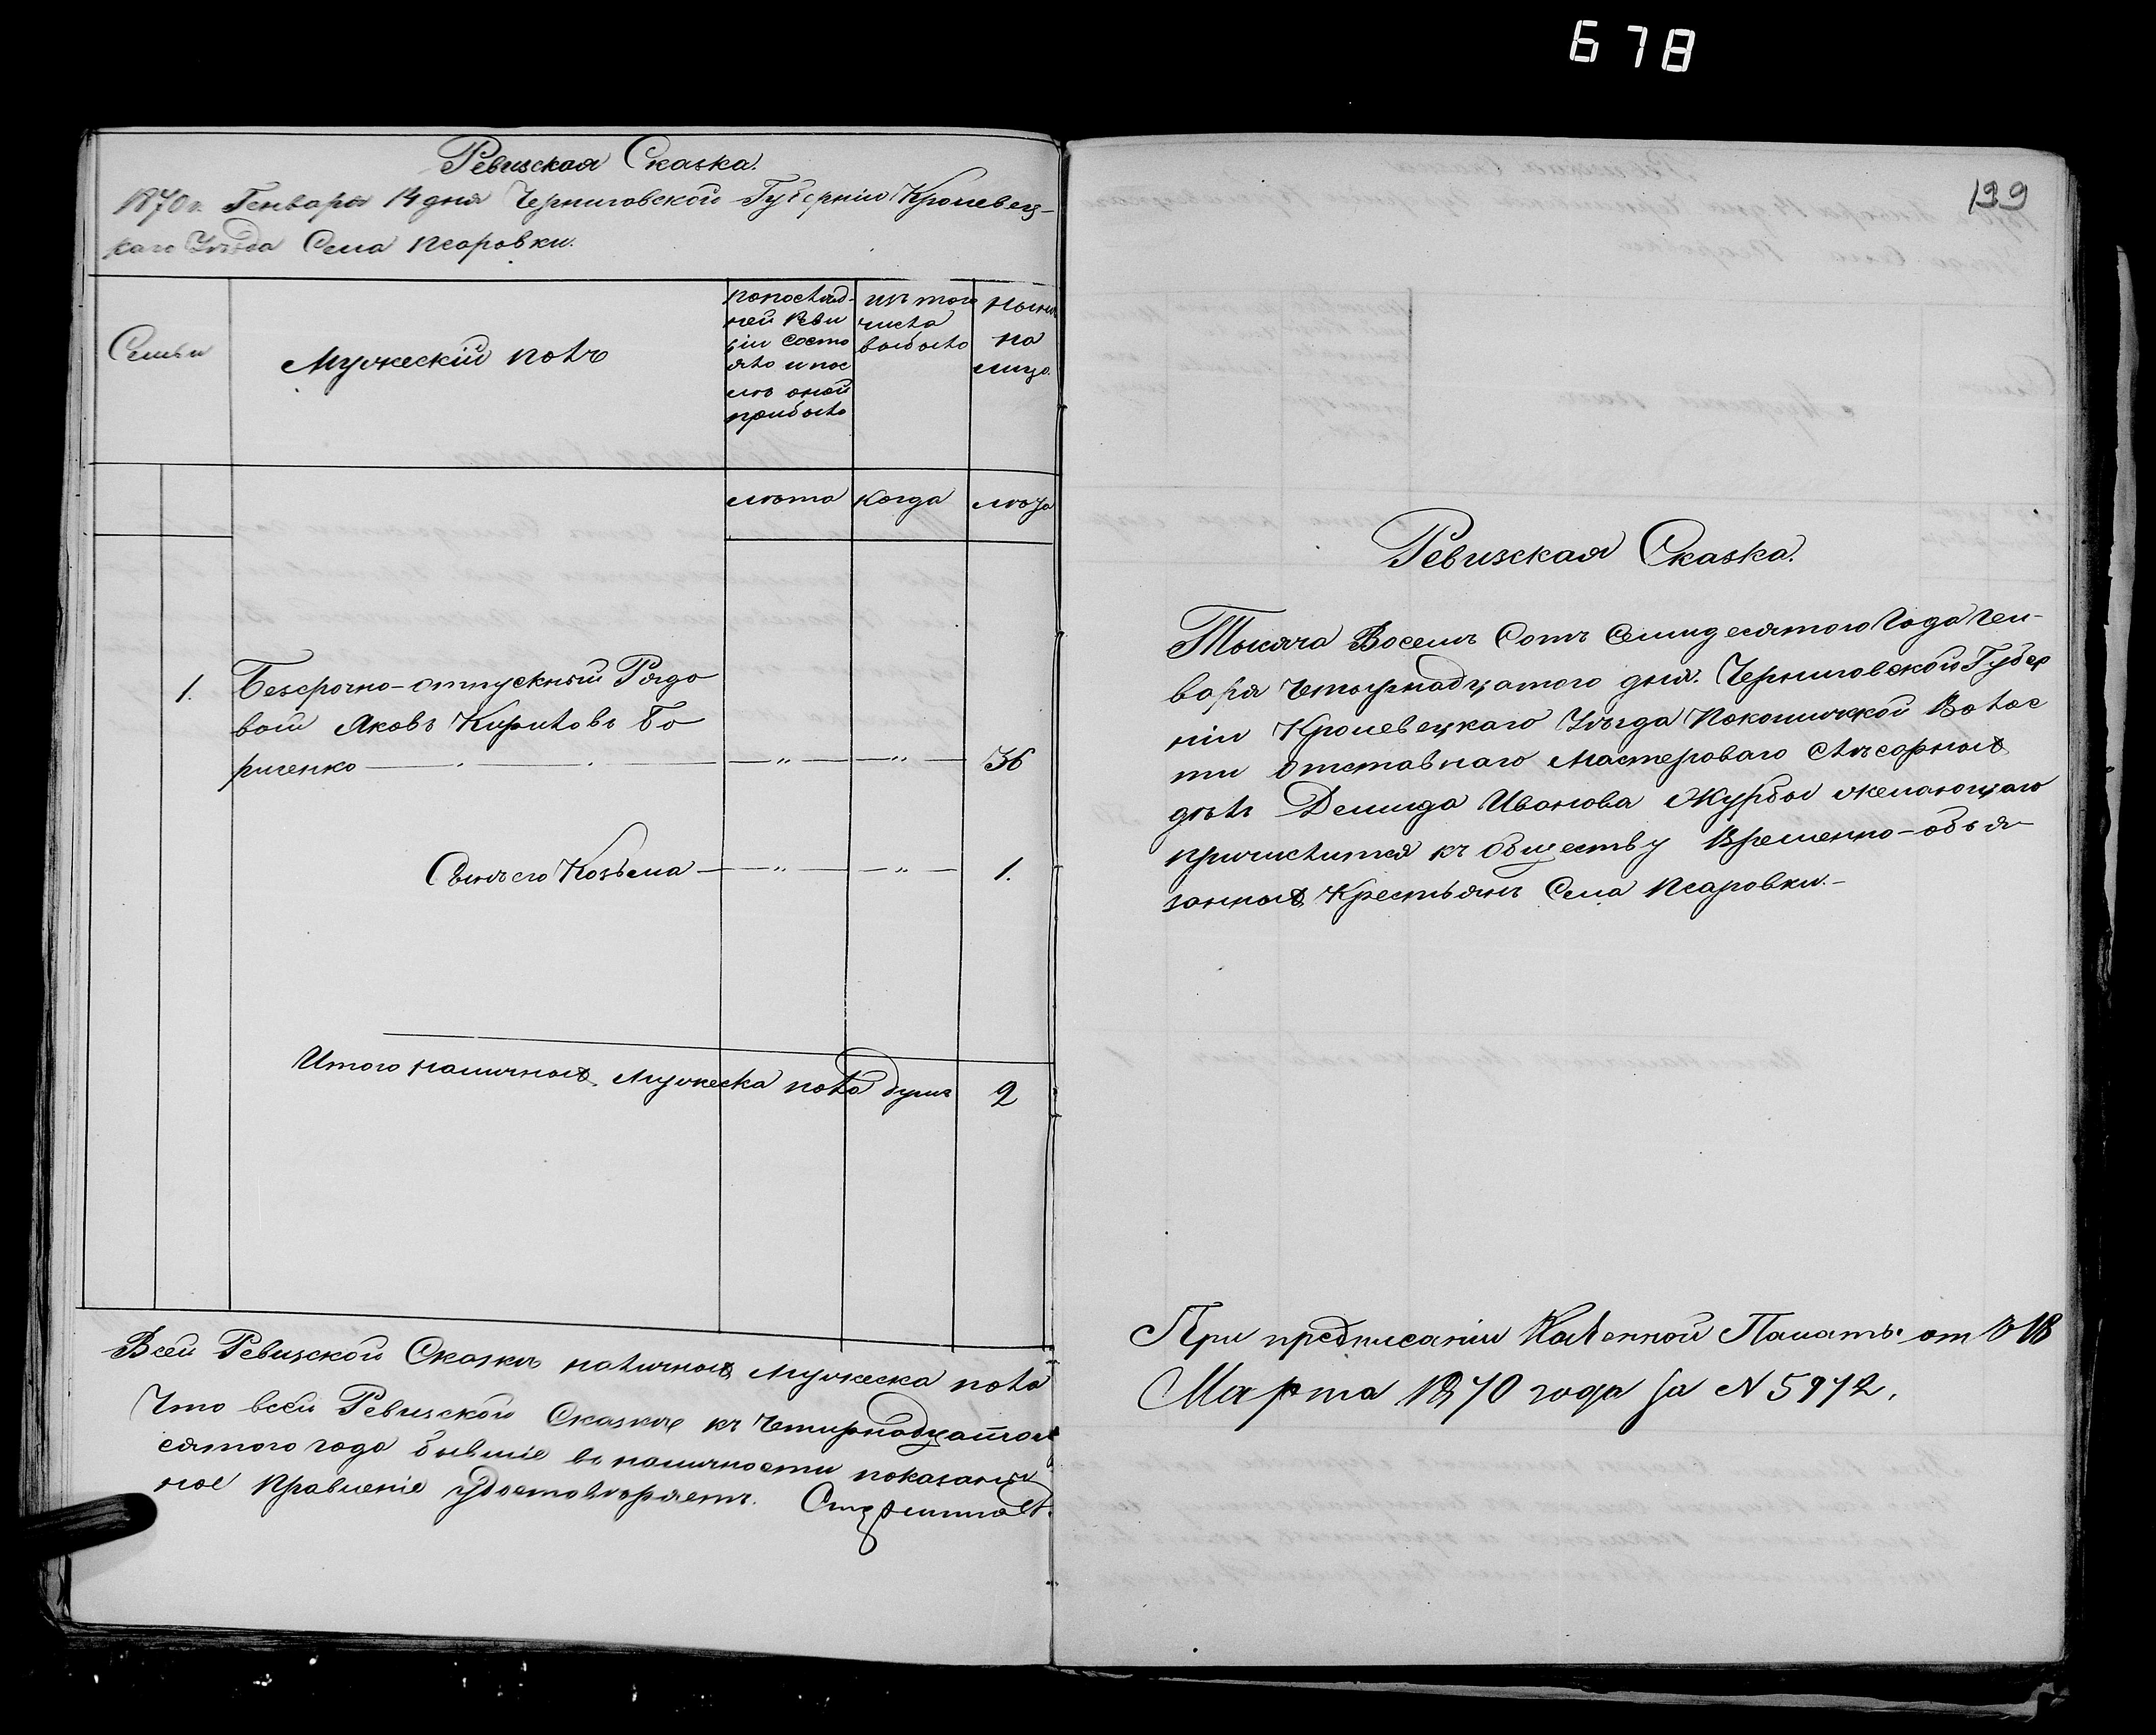 678
Ревизская Сказка.
1870 г. Генваря 14 дня Черниговской Губерніи Кролевец-
каго Уѣзда Села Псаровки.
Семьи
Мужескій полъ
По послѣд-
ней Реви
зіи состо
яло и пос
лѣ оной
прибыло
изъ того
числа
выбыло
Нынѣ
на
лицо.
лѣта
когда
лѣта
1. Безсрочно-отпускный Рядо
вой Яковъ Кириловъ Бо
риченко — „ — „ — 36
Сынъ его Козьма — „ — „ — 1.
Итого наличныхъ мужеска пола душъ 2
Всей Ревизской Сказкѣ наличныхъ мужеска пола
Что всей Ревизской Сказкѣ къ Четырнадцатом
сятого года бывшіе въ наличности показаны
ное Правленіе удостовѣряетъ.
199
Ревизская Сказка.
Тысяча Восемь Сотъ Семидесятого Года Ген-
варя Четырнадцатого дня. Черниговской Губер
ніи Кролевецкаго Уѣзда Покошичкой Волос
ти Отставнаго Мастероваго Слѣсарныхъ
дѣлъ Демида Иванова Журбы желающаго
причислится къ Обществу Временно-обья
занныхъ Крестьянъ Села Псаровки.-
При предписаніи Казенной Палаты отъ 18
Марта 1870 года за N 5972.